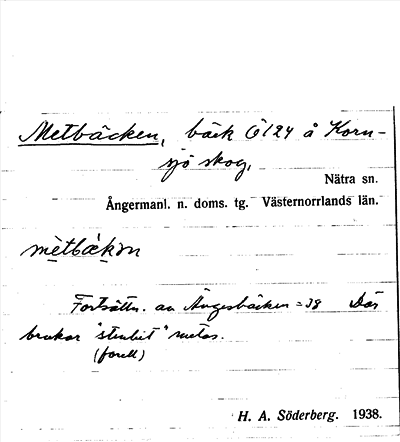 Metbäcken, bäck Ö124 å Korn-
sjö skog,
Nätra sn.
Ångermanl. n. doms. tg. Västernorrlands län.
mètbäkən
Fortsättn. av Ängesbäcken = 38 Där
brukar "stenbit" metas.
(forell)
H. A. Söderberg. 1938.